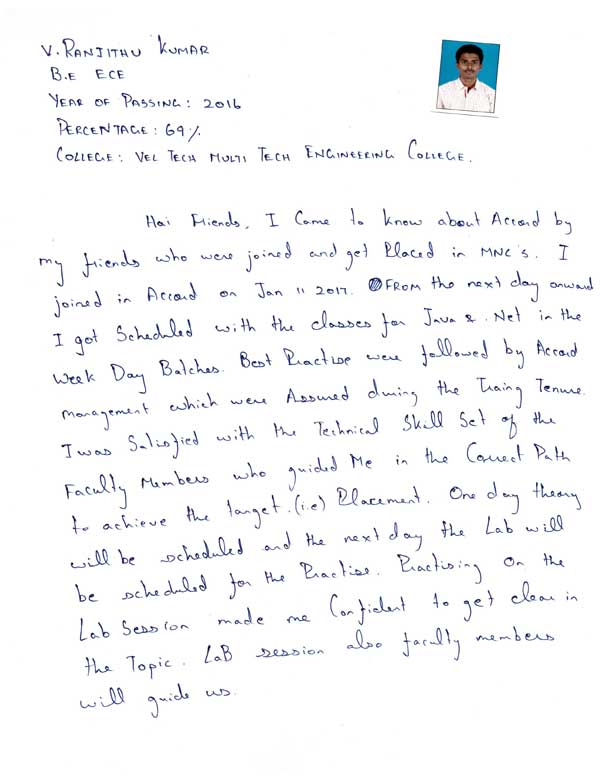 V. RANJITHU KUMAR
B.E ECE
YEAR OF PASSING: 2016
PERCENTAGE: 69%
COLLEGE: VEL TECH MULTI TECH ENGINEERING COLLEGE.
Hai Friends, I Came to know about Accord by
my friends who were joined and get Placed in MNC's. I
joined in Accord on Jan 11 2017. FROM the next day onward
I got Scheduled with the classes for Java & .Net in the
Week Day Batches. Best Practise were followed by Accord
management which were Assured during the Traing Tenure.
I was Satisfied with the Technical Skill Set of the
Faculty Members who guided Me in the Correct Path
to achieve the target.(i.e) Placement. One day theory
will be scheduled and the next day the Lab will
be scheduled for the Practise. Practising on the
Lab Session made me Confident to get clear in
the Topic. LaB session also faculty members
will guide us.